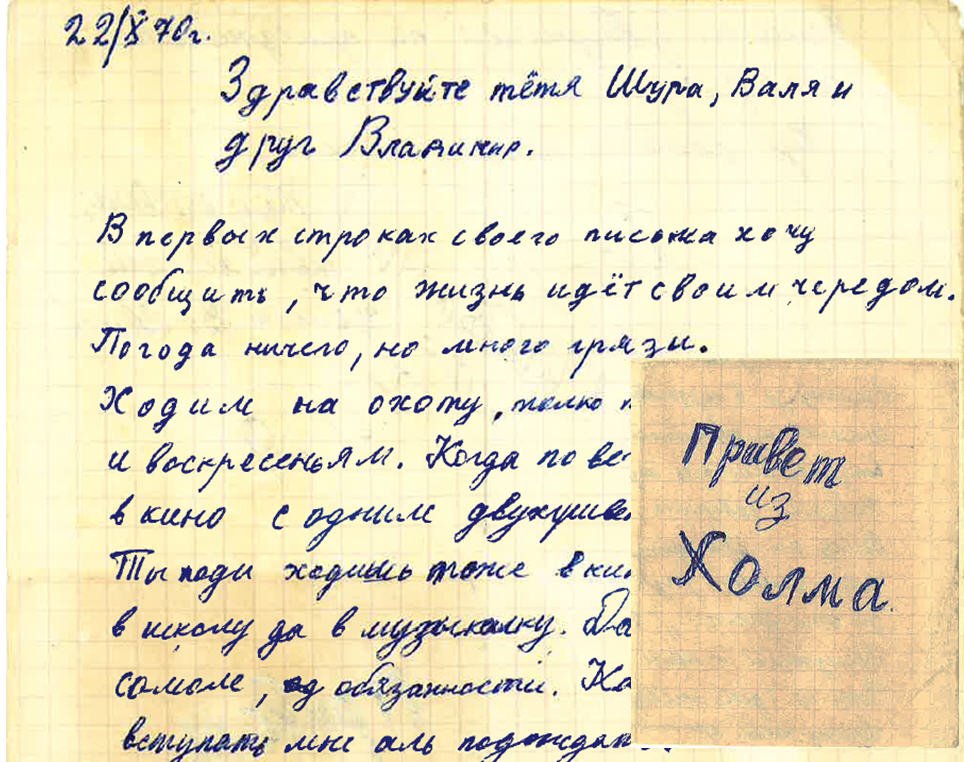 22/X 70г.
Здравствуйте тётя Шура, Валя и
друг Владимир.
В первых строках своего письма хочу
сообщить, что жизнь идёт своим чередом.
Погода ничего, но много грязи.
Ходим на охоту, толко
и воскресеньям. Когда по ве
в кино с одним
Ты поди ходишь тоже в ки
в школу да в музыкалку. Да
сомоле, обязанности. Ка
вступать мне аль подождать
Привет
из
Холма.